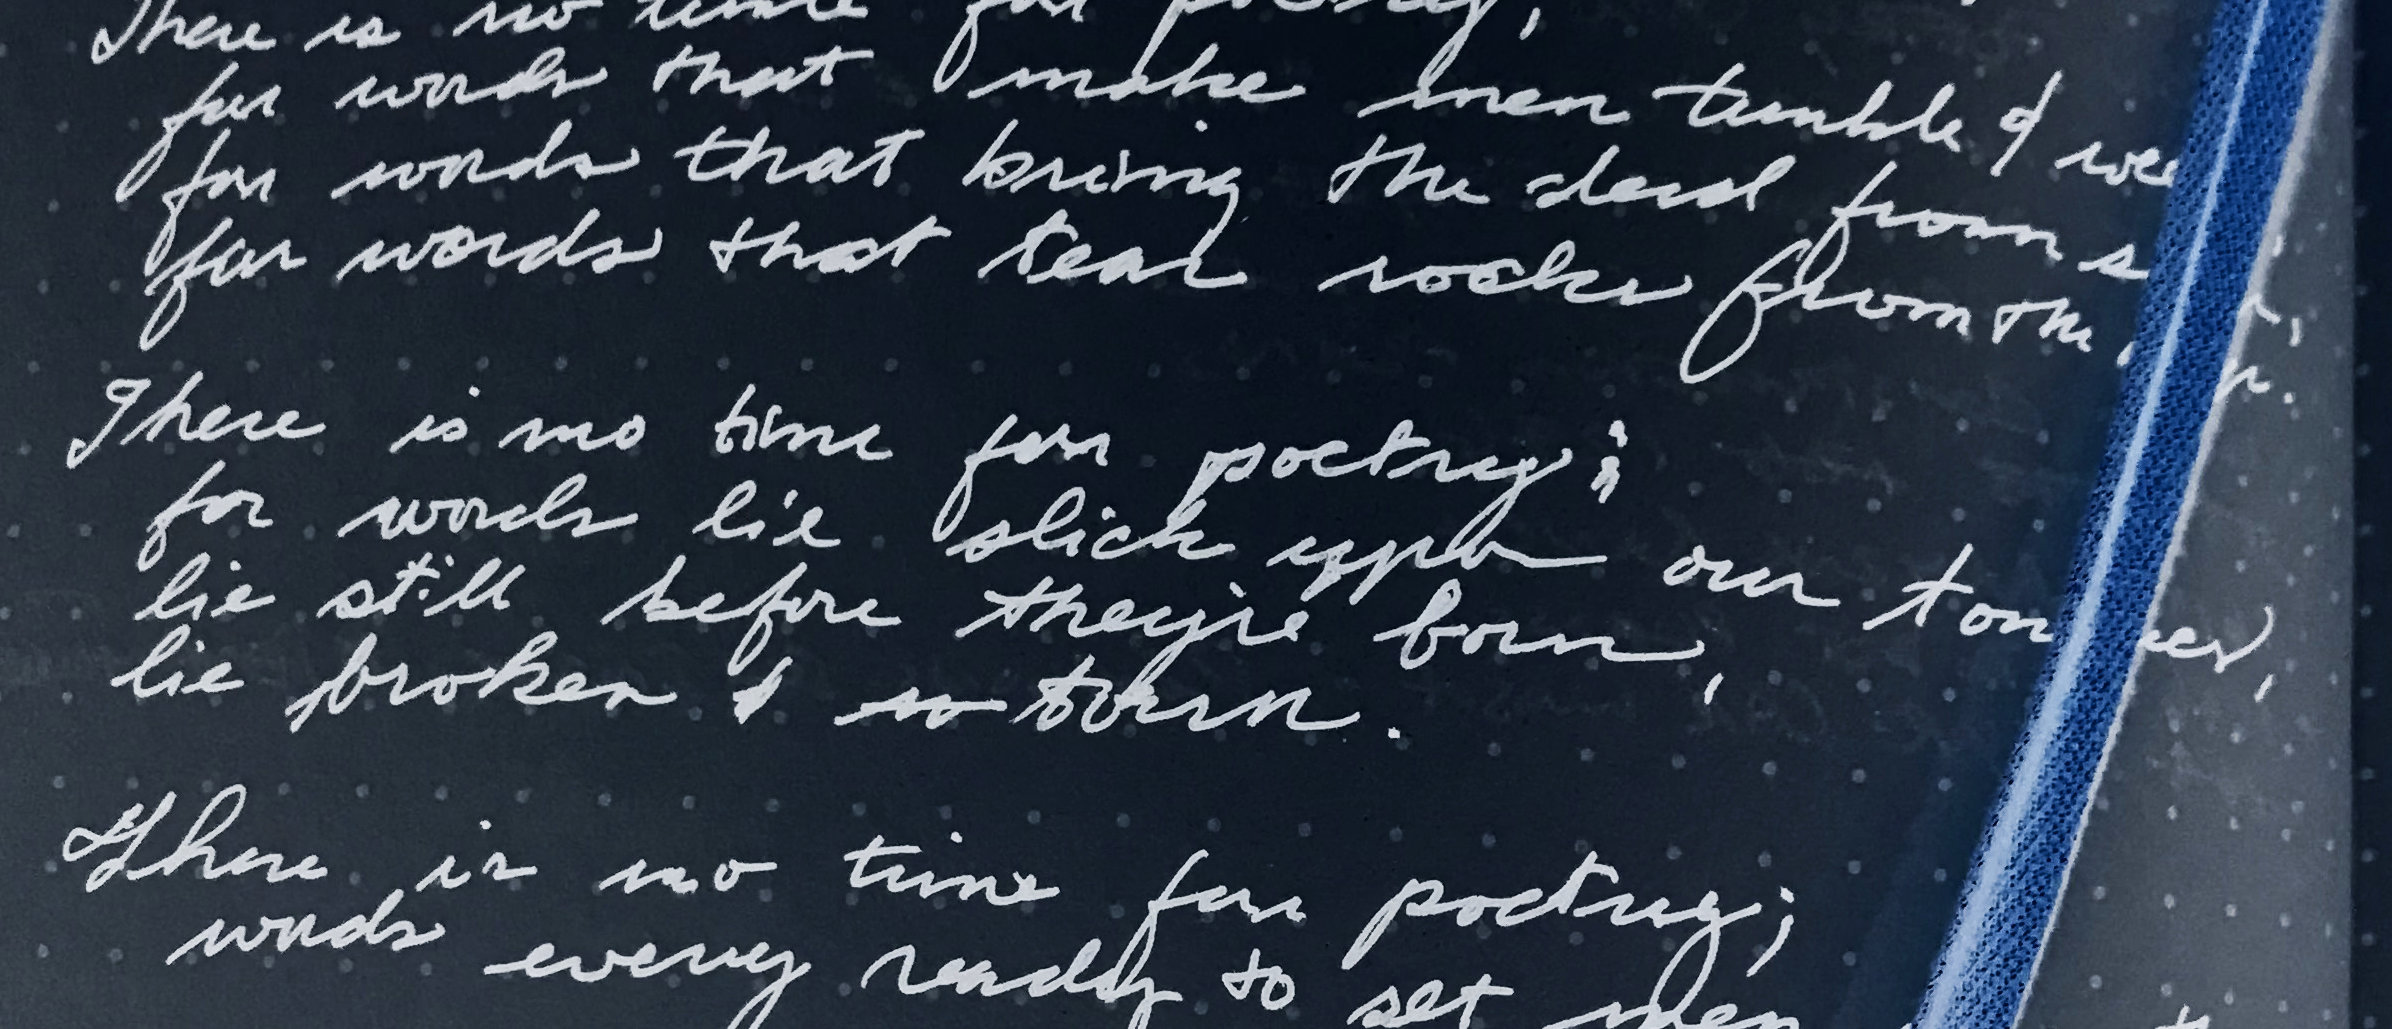 There is no time for poetry,
for words that make men tumble &
for words that bring the dead from
for words that tear rocks from the
There is no time for poetry;
for words lie slick upon our tongues,
lie still before they're born,
lie broken & torn.
There is no time for poetry;
words every ready to set men